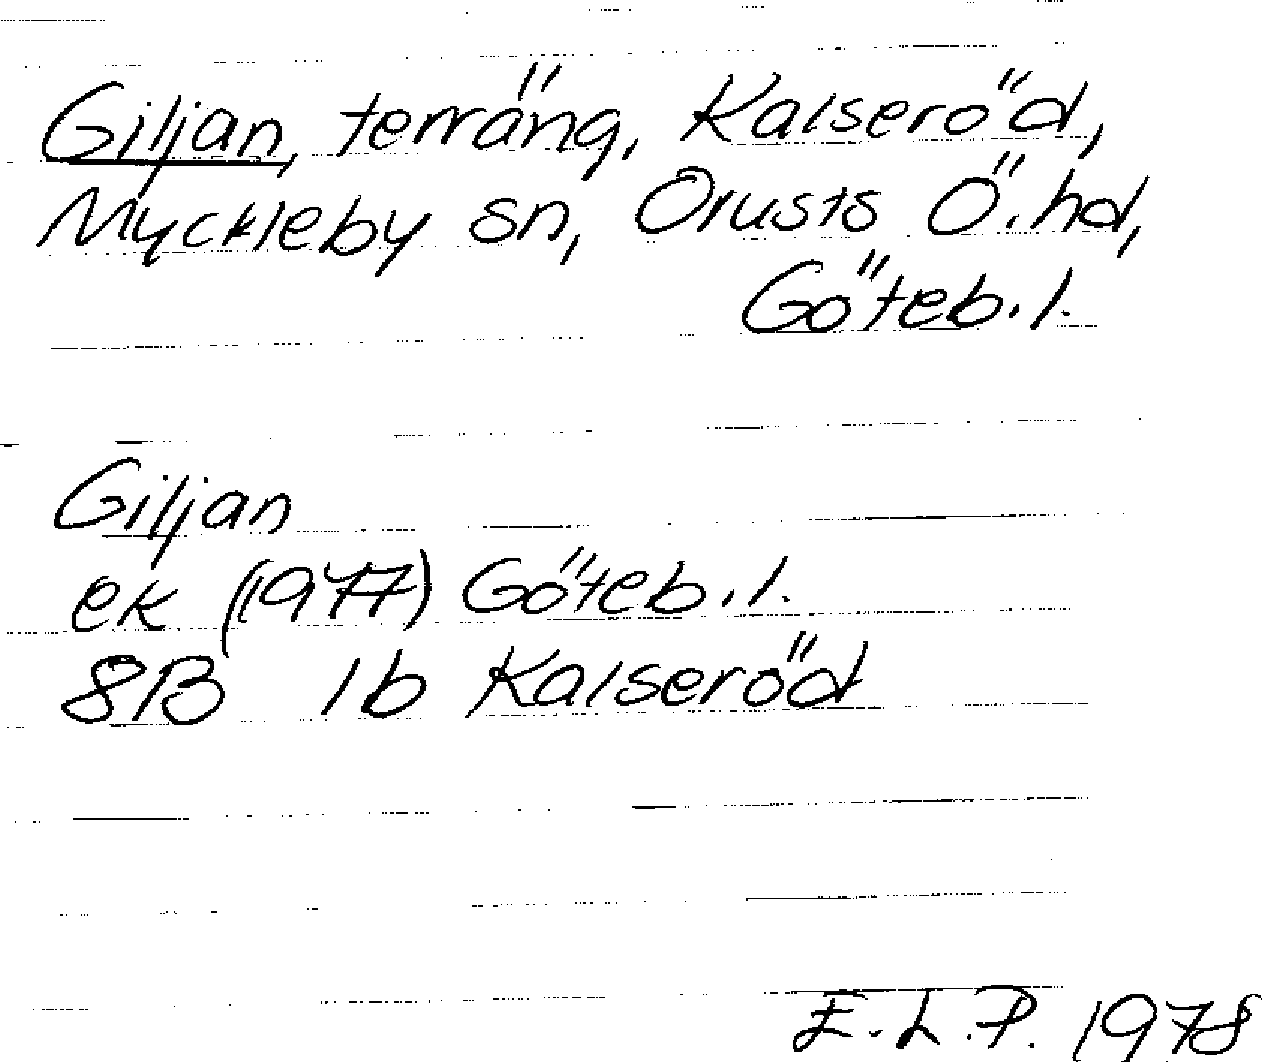 Giljan, terräng, Kalseröd,
Myckleby sn, Orusts Ö. hd,
Göteb. l.
Giljan
ek (1977) Göteb. l.
8B 1b Kalseröd
E. L. P. 1978